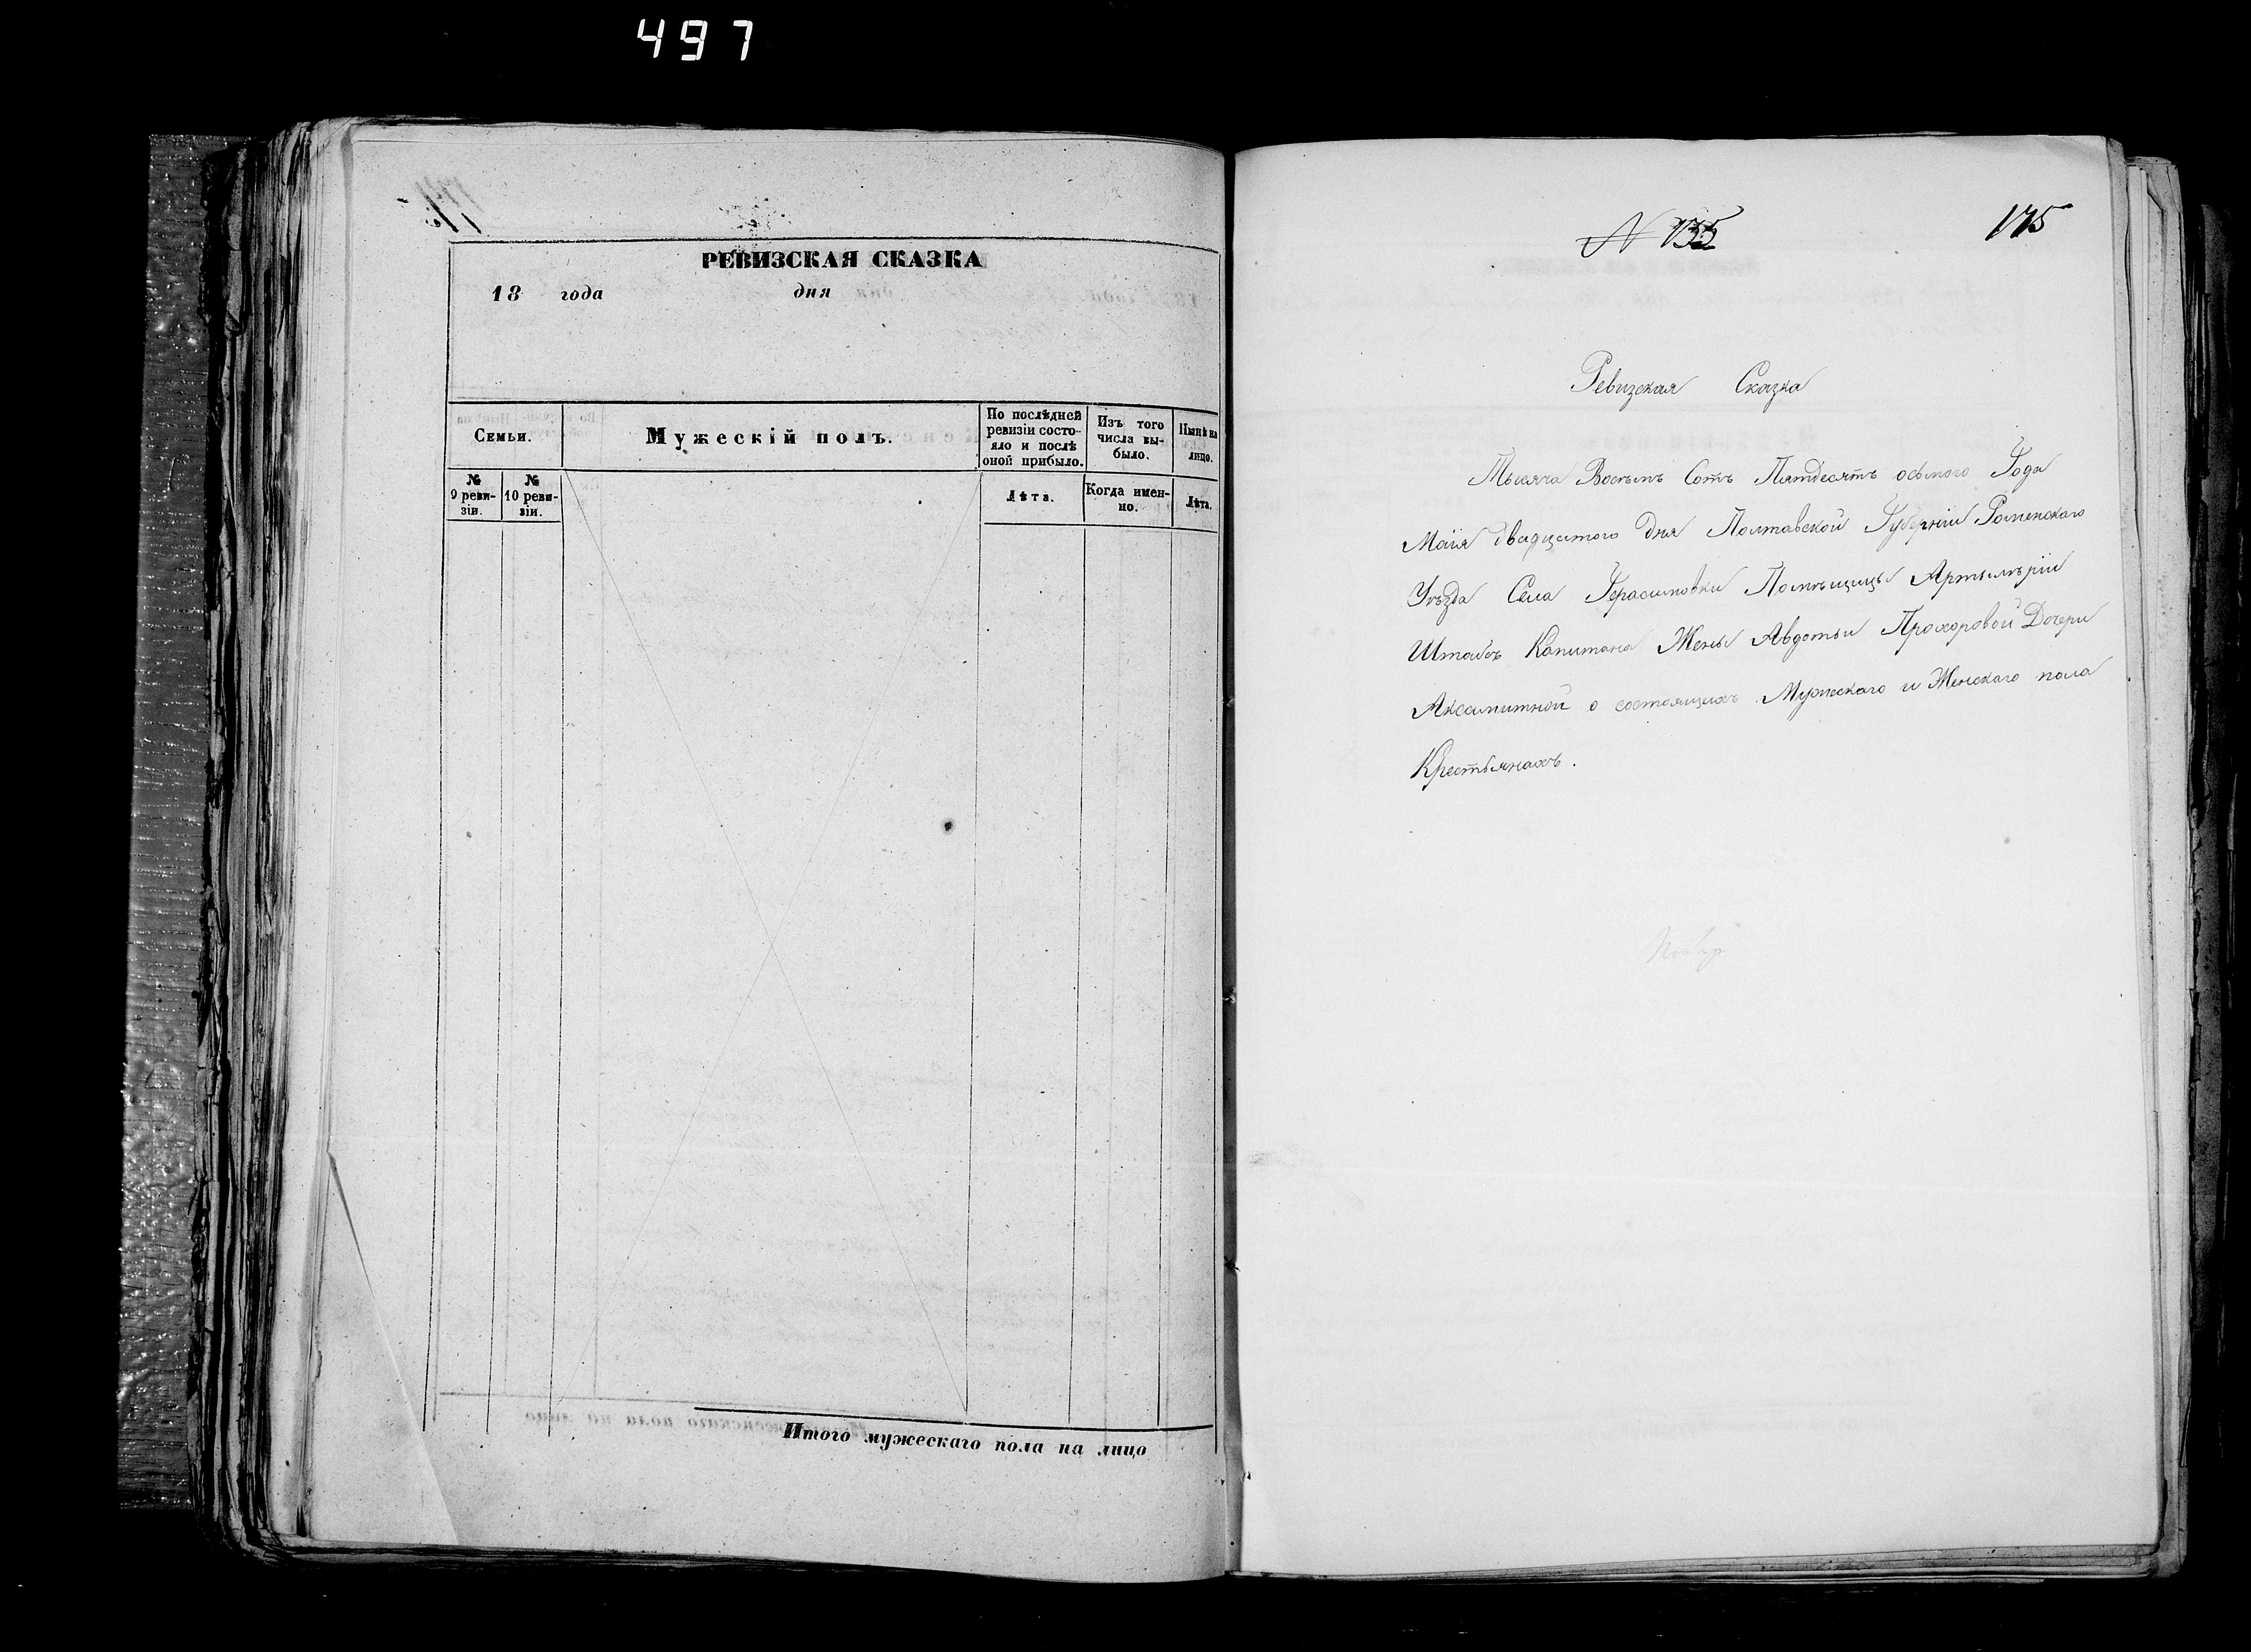 497
РЕВИЗСКАЯ СКАЗКА
18 года дня
Семьи.
Мужескій полъ.
По послѣдней ревизіи состо-
яло и послѣ
оной прибыло.
Изъ того
числа вы-
было.
Нынѣ на
лицо.
№
9 реви-
зіи.
№
10 реви-
зіи.
Лѣта.
Когда имен-
но.
Лѣта.
Итого мужескаго пола на лицо
N 135
175
Ревизская Сказка
Тысяча Восемь Сотъ Пятдесятъ осьмого Года
Маія двадцатого дня Полтавской Губерніи Роменскаго
Уѣзда Села Герасимовки Помѣщицы Артылѣріи
Штабсъ Капитана Жены Авдотьи Прохоровой Дочери
Аксамитной о состоящихъ Мужескаго и Женскаго пола
Крестьянахъ.